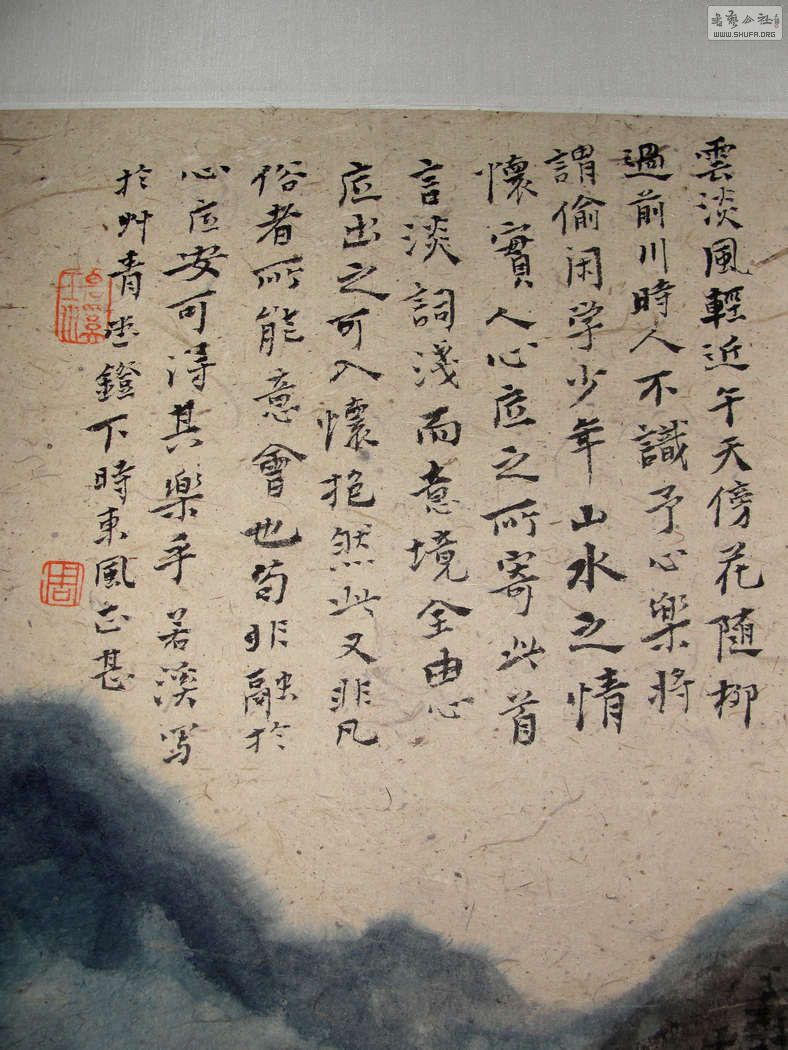 雲淡風輕近午天傍花随柳
過前川時人不識予心樂將
謂偷闲学少年山水之情
懷實人心底之所寄此首
言淡詞淺而意境全由心
底出之可入懷抱然此又非凡
俗者所能意會也苟非融於
心底安可得其樂乎 若溪写
於艸青堂鐙下時東風正甚
周
書藝公社
WWW.SHUFA.ORG